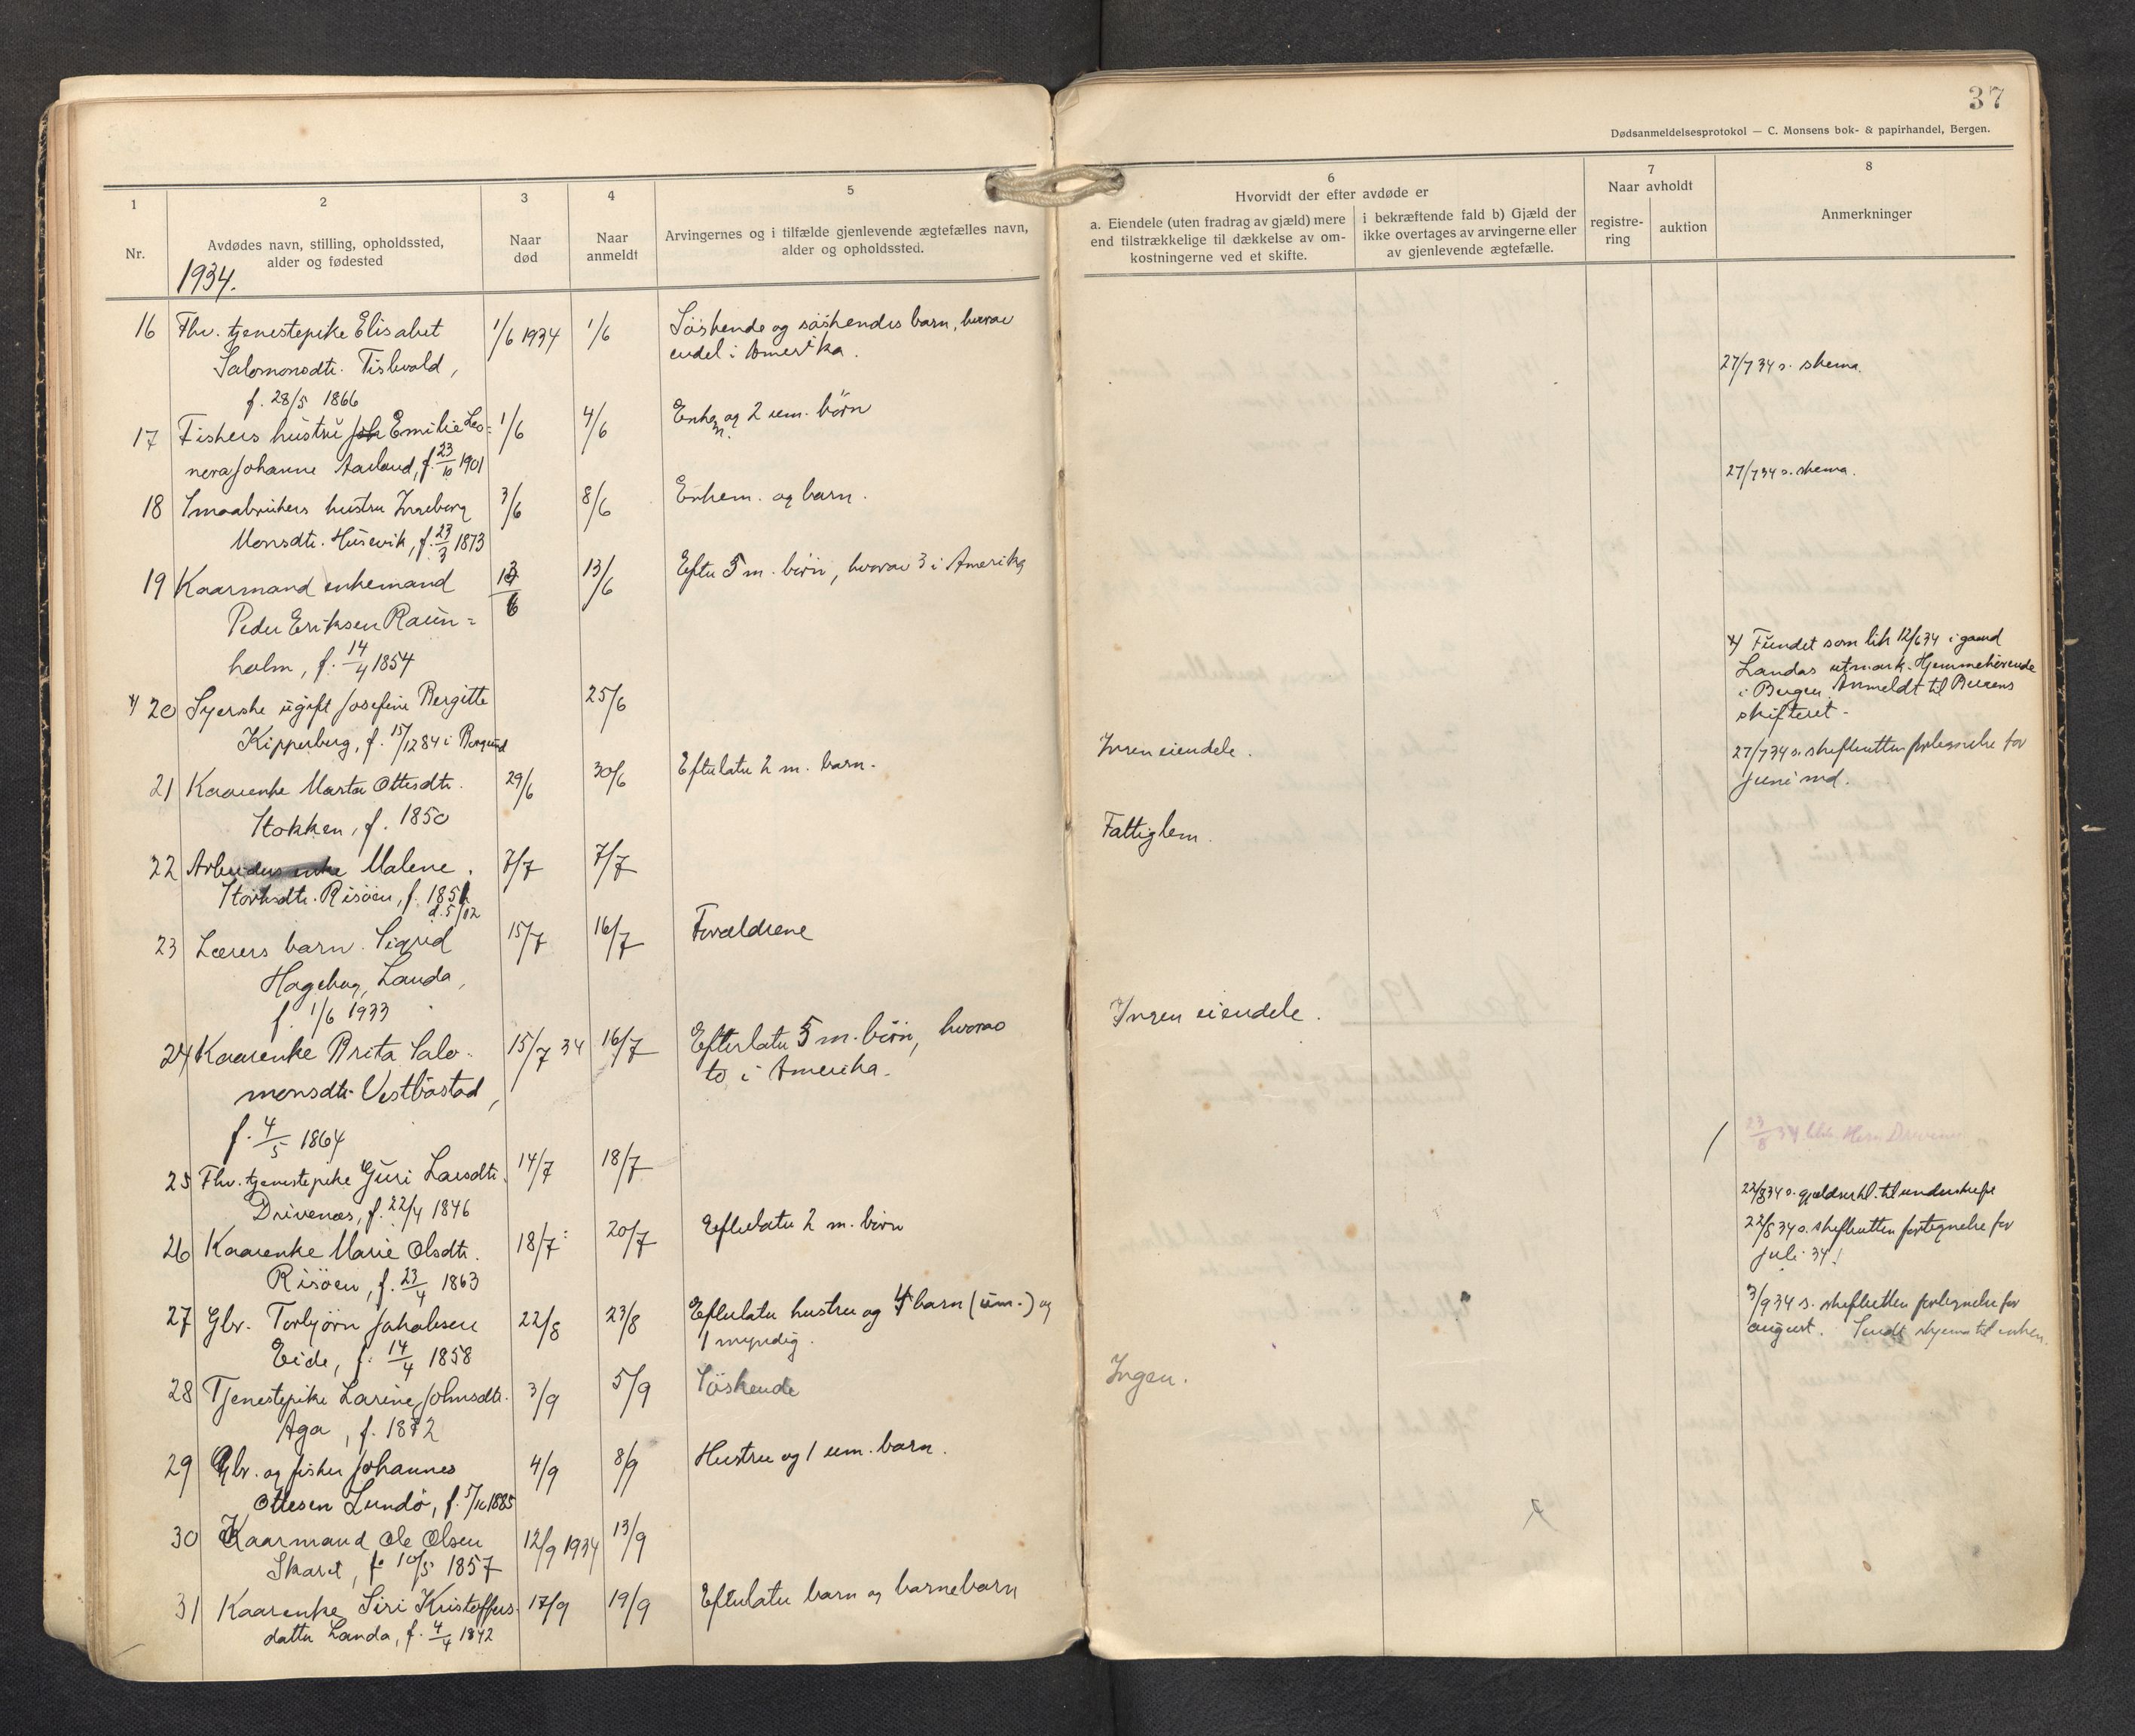 37
Dødsanmeldelsesprotokol — C. Monsens bok- & papirhandel, Bergen.
1
Nr.
2
Avdødes navn, stilling, opholdssted,
alder og fødested
3
Naar
død
4
Naar
anmeldt
5
Arvingernes og i tilfælde gjenlevende ægtefælles navn,
alder og opholdssted.
6
Hvorvidt der efter avdøde er
a. Eiendele (uten fradrag av gjæld) mere
end tilstrækkelige til dækkelse av om-
kostningerne ved et skifte.
i bekræftende fald b) Gjæld der
ikke overtages av arvingerne eller
av gjenlevende ægtefælle.
7
Naar avholdt
registre-
ring
auktion
8
Anmerkninger
1934.
16 Fhv. tjenestepike Elisabet 1/6 1934 1/6 Söskende og söskendes barn, hvorav
Salomonsdtr. Tislevold, endel i Amerika.
f. 28/5 1866
27/7 34 s. skema.
17 Fiskers hustru Emilie Leo= 1/6 4/6 Enkem. og 2 um. börn
nora Johanne Aarland, f. 23/10 1901
27/7 34 s. skema.
18 Smaabrukers hustru Ingeborg 3/6 8/6 Enkem. og barn.
Monsdtr. Husevik, f. 23/3 1873
19 Kaarmand enkemand 13/6 Efter 5 m. börn, hvorav 3 i Amerika
Peder Eriksen Raun=
holm, f. 14/4 1854
x/ 20 Syerske ugift Josefine Bergitte 25/6
Kipperberg, f. 15/12 84 i Borgund
x/ Fundet som lik 12/6 34 i gaard
Landas utmark. Hjemmehörende
i Bergen. Anmeldt til Bergens
skifteret.
21 Kaarenke Marta Ottesdtr. 29/6 30/6 Efterlater 2 m. barn. Ingen eiendele.
Stokken, f. 1850
27/7 34 s. skefteretten fortegnelse for
juni md.
22 Arbeiders enke Malene 7/7 7/7 Fattiglem.
Störksdtr. Risöen, f. 1851
d. 5/12
23 Lærers barn Sigrid 15/7 16/7 Forældrene
Hagebøg, Landa,
f. 1/6 1933
24 Kaarenke Brita Salo- 15/7 34 16/7 Efterlater 5 m. börn, hvorav Ingen eiendele.
monsdtr. Vestböstad, to i Amerika.
f. 4/5 1864
25 Fhv. tjenestepike Guri Larsdtr. 14/7 18/7
Drivenes, f. 22/4 1846
22/8 34 s. til underskrift
26 Kaarenke Marie Olsdtr. 18/7 20/7 Efterlater 2 m. börn
Risöen, f. 23/4 1863
22/8 34 s. skefteretten fortegnelse for
juli 34!
27 Gbr. Torbjörn Jakobsen 22/8 23/8 Efterlater hustru og 4 barn (um.) og
Eide, f. 14/4 1858 1 myndig.
3/9 34 s. skefteretten fortegnelse for
august. Sendt skjema til enken.
28 Tjenestepike Larine Johnsdtr. 3/9 5/9 Söskende Ingen.
Aga, f. 1872
29 Gbr. og fisker Johannes 4/9 8/9 Hustru og 1 um. barn.
Ottesen Lundö, f. 5/10 1885
30 Kaarmand Ole Olsen 12/9 1934 13/9
Skaret, f. 10/5 1857
31 Kaarenke Siri Kristoffers- 17/9 19/9 Efterlater barn og barnebarn
datter Landa, f. 4/4 1842